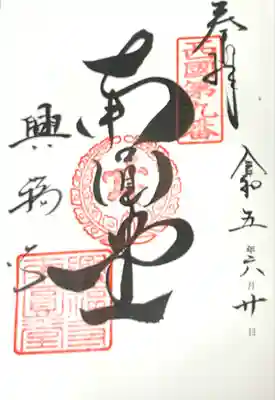 奉拝
西國第九番
令和五年六月廿日
南円堂
興福寺